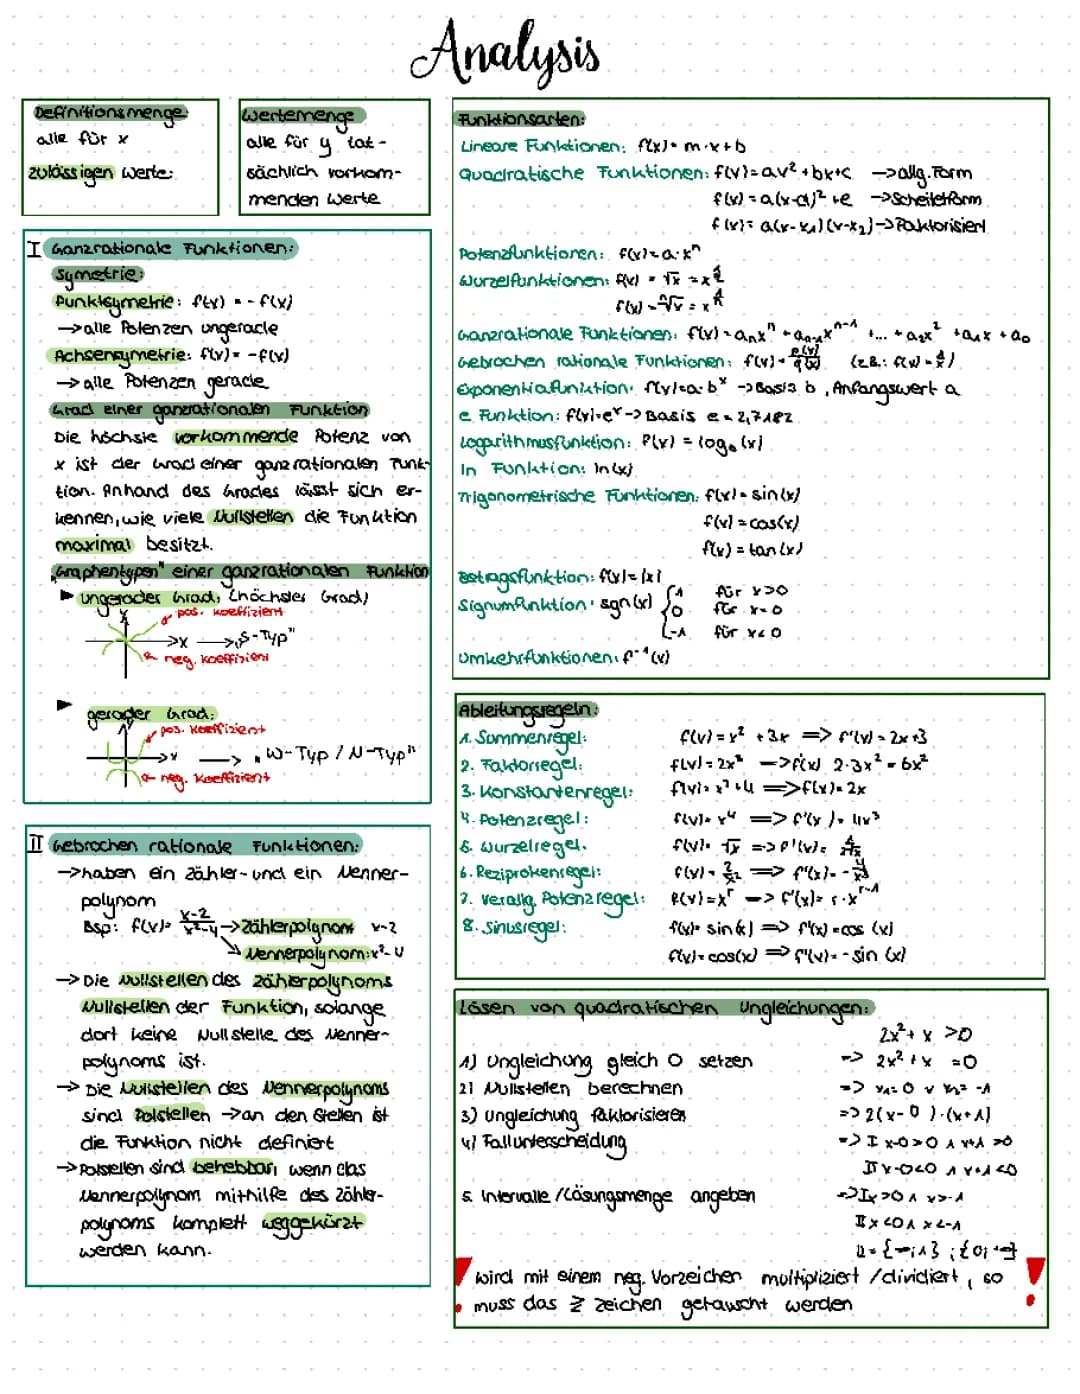 Analysis
Definitionsmenge:
alle für x
zulässigen Werte:
Wertemenge
alle für y tat-
sächlich vorkom-
menden Werte
I Ganzrationale Funktionen:
Symetrie:
Punktsymetrie: f(x) = -f(x)
→alle Potenzen ungerade
Achsensymetrie: f(x) = -f(x)
→alle Potenzen gerade
Grad einer ganzrationalen Funktion
Die höchste vorkommende Potenz von
x ist der Grad einer ganzrationalen Funk-
tion. Anhand des Grades lässt sich er-
kennen, wie viele Nullstellen die Funktion
maximal besitzt.
„Graphentypen" einer ganzrationalen Funktion
► ungerader Grad: (höchster Grad)
pos. Koeffizient
→x → „S-Typ"
neg. Koeffizient
► gerader Grad:
pos. Koeffizient
→x → „W-Typ / N-Typ"
neg. Koeffizient
II Gebrochen rationale Funktionen:
→haben ein Zähler- und ein Nenner-
polynom
Bsp: f(x)= x-2/x²-4 →Zählerpolynom x-2
↘ Nennerpolynom: x²-4
→ Die Nullstellen des Zählerpolynoms
Nullstellen der Funktion, solange
dort keine Nullstelle des Nenner-
polynoms ist.
→ Die Nullstellen des Nennerpolynoms
sind Polstellen →an den Stellen ist
die Funktion nicht definiert
→Polstellen sind behebbar, wenn das
Nennerpolynom mithilfe des Zähler-
polynoms komplett weggekürzt
werden kann.
Funktionsarten:
Lineare Funktionen: f(x)= m·x+b
Quadratische Funktionen: f(x)=ax²+bx+c →allg. Form
f(x) = a(x-d)²+e →Scheitelform
f(x)= a(x-x₁)(x-x₂)→Faktorisiert
Potenzfunktionen: f(x)=a·xⁿ
Wurzelfunktionen: f(x) = √x = x^½
f(x) = ⁿ√x = x^1/n
Ganzrationale Funktionen: f(x) = aₙxⁿ + aₙ₋₁xⁿ⁻¹ +... + a₂x² + a₁x + a₀
Gebrochen rationale Funktionen: f(x) = p(x)/q(x) (z.B.: f(x) = 1/x)
Exponentialfunktion: f(x)=a·bˣ →Basis b, Anfangswert a
e Funktion: f(x)=eˣ→Basis e=2,7182
Logarithmusfunktion: f(x) = log_b (x)
ln Funktion: ln(x)
Trigonometrische Funktionen: f(x) = sin(x)
f(x) = cos(x)
f(x) = tan(x)
Betragsfunktion: f(x)=|x|
Signumfunktion: sgn(x) { 1 für x>0
0 für x=0
-1 für x<0
Umkehrfunktionen: f⁻¹(x)
Ableitungsregeln:
1. Summenregel: f(x) = x² +3x => f'(x) = 2x+3
2. Faktorregel: f(x) = 2x³ =>f'(x) 2·3x² = 6x²
3. Konstantenregel: f(x) = x²+4 =>f(x)=2x
4. Potenzregel: f(x)= x⁴ => f'(x)= 4x³
5. Wurzelregel: f(x)= √x => f'(x)= 1/2√x
6. Reziprokenregel: f(x) = 2/x² => f'(x)= -4/x³
7. Verallg. Potenzregel: f(x)=xʳ => f'(x)= r·xʳ⁻¹
8. Sinusregel: f(x)= sin(x) => f'(x)=cos (x)
f(x)=cos(x) => f'(x)= -sin (x)
Lösen von quadratischen Ungleichungen:
2x²+ x >0
1) Ungleichung gleich 0 setzen => 2x² + x =0
2) Nullstellen berechnen => x₁=0 ∨ x₂= -1
3) Ungleichung faktorisieren => 2(x-0)·(x+1)
4) Fallunterscheidung => I x-0>0 ∧ x+1>0
II x-0<0 ∧ x+1<0
5. Intervalle /Lösungsmenge angeben =>I x>0 ∧ x>-1
II x<0 ∧ x<-1
wird mit einem neg. Vorzeichen multipliziert /dividiert, so
muss das ≥ zeichen getauscht werden